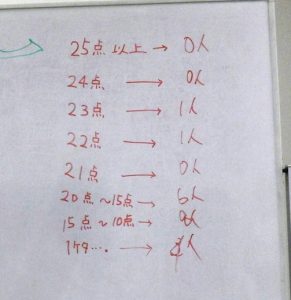 25点以上→0人
24点 → 0人
23点 → 1人
22点 → 1人
21点 → 0人
20点~15点→ 6人
15点~10点→ 人
1ケタ…. → 人